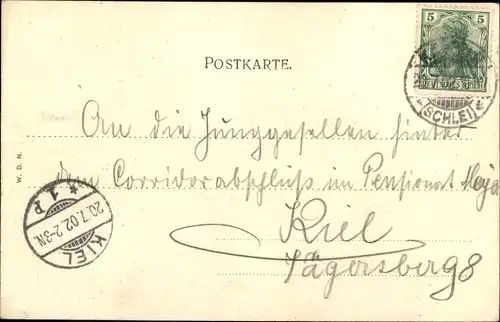 POSTKARTE.
5
DEUTSCHES REICH
(SCHLEI)
An die Junggesellen hinter
dem Corridorabschluss im Pensionat
Kiel
Jägersberg 8
W. D. N.
KIEL
20.7.02.2-3N.
* 1 P